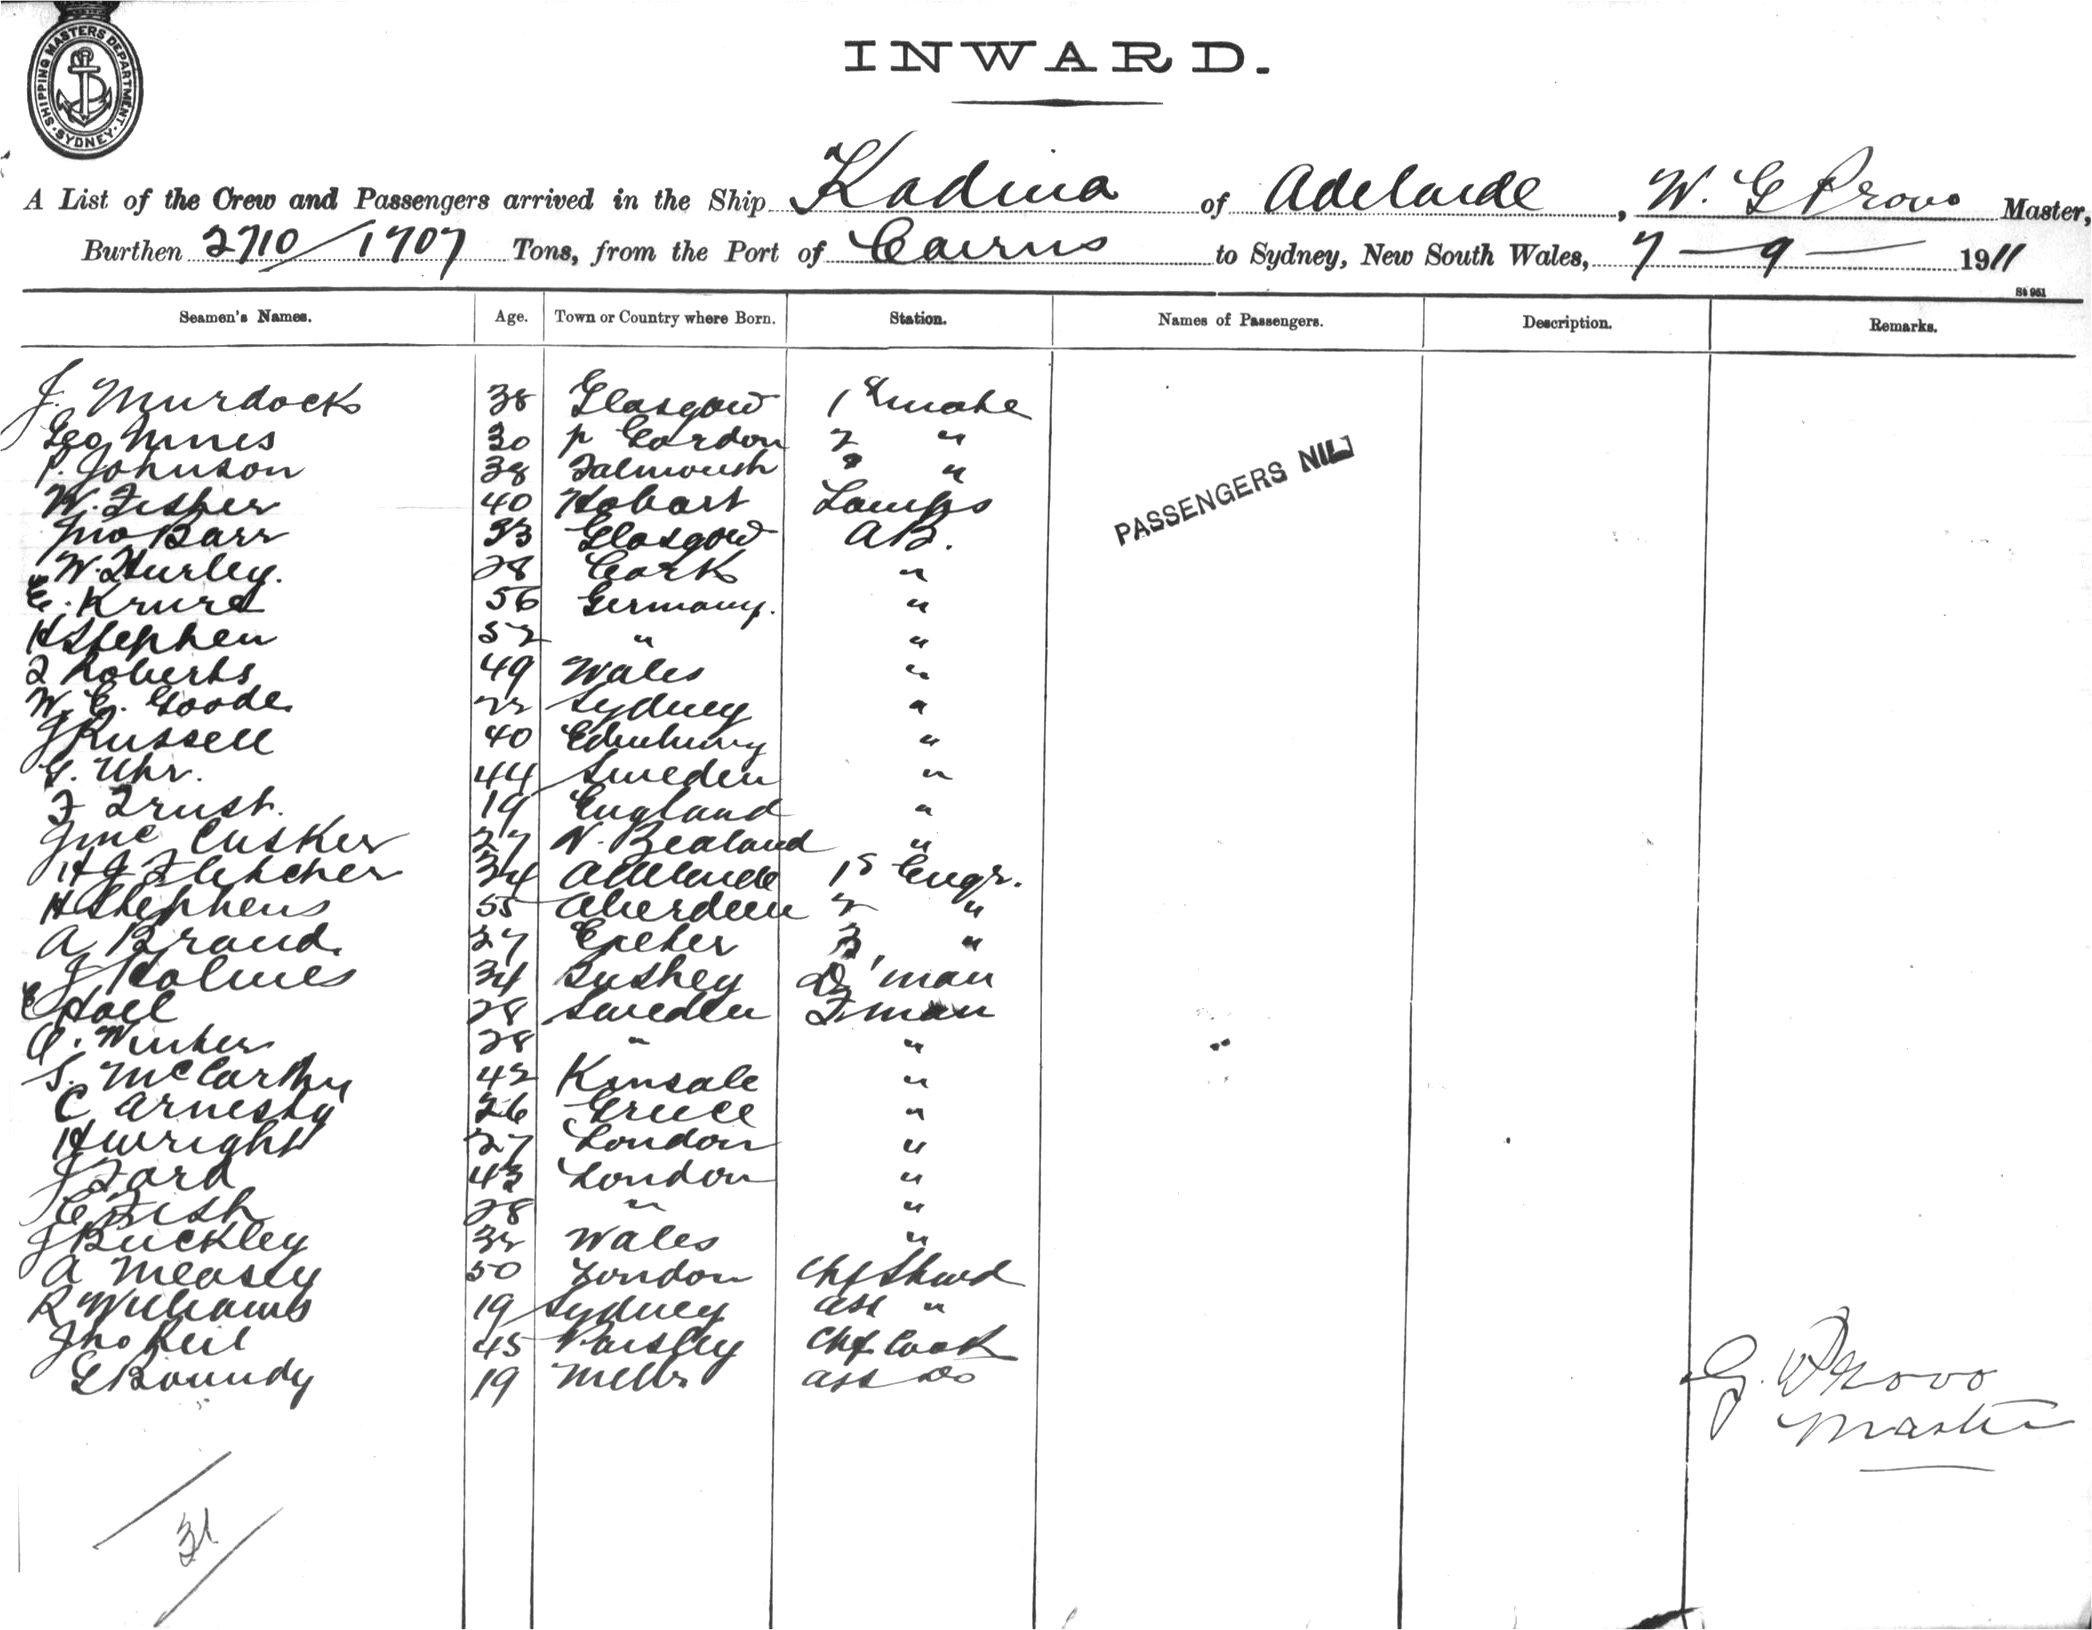 SHIPPING MASTERS DEPARTMENT
SYDNEY
INWARD.
A List of the Crew and Passengers arrived in the Ship Kadina of Adelaide, W. G Provo Master,
Burthen 2710/1707 Tons, from the Port of Cairns to Sydney, New South Wales, 7-9-1911
St 961
Seamen's Names. Age. Town or Country where Born. Station. Names of Passengers. Description. Remarks.
J. Murdock 38 Glasgow 1st mate
Geo Innes 30 p Gordon 2 "
P. Johnson 38 Falmouth 3 "
W. Fisher 40 Hobart Lamps
Jno Barr 33 Glasgow AB.
PASSENGERS NIL
W. Hurley. 28 Cork "
E. 56 Germany. "
H Stephen 52 " "
Roberts 49 Wales "
W. E. Goode. 22 Sydney "
J Russell 40 "
G. Uhr. 44 Sweden "
F Trust. 19 England "
J Mc Cusker 27 N. Zealand "
H J Fletcher 34 Adelaide 1s Engr.
H Stephens 55 Aberdeen 2 "
A Brand. 27 Exeter 3 "
J Holmes 34 Bushey D'man
E Hall 28 Sweden F man
O. Winter 28 " "
S. McCarthy 42 Kinsale "
C 26 Greece "
H Wright 27 London "
J Ford 43 London "
E Fish 28 " "
J Buckley 32 Wales "
A Measey 50 London Chf Stwd
R Williams 19 Sydney asst "
Jno Keil 45 Paisley Chf Cook
G Boundy 19 Melb ass Do
G. Provo
Master
31